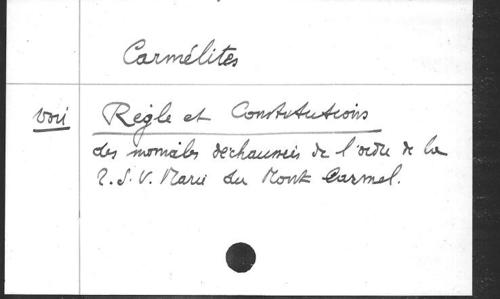 Carmélites
voir Règle et Constitutions
des moniales déchaussées de l'ordre de la
T. S. V. Marie du Mont Carmel.